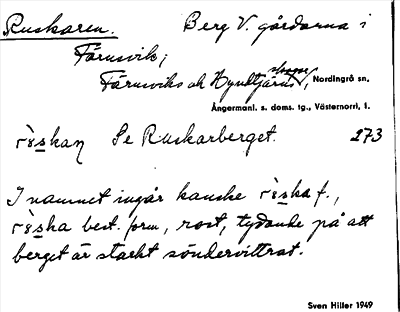 Ruskaren. Berg V. gårdarna i
Färnsvik;
Färnsviks och skogar, Nordingrå sn.
Ångermanl. s. doms. tg., Västernorrl. l.
Se Ruskarberget. 273
I namnet ingår kanske f.,
best. form, rost, tydande på att
berget är starkt söndervittrat.
Sven Hiller 1949